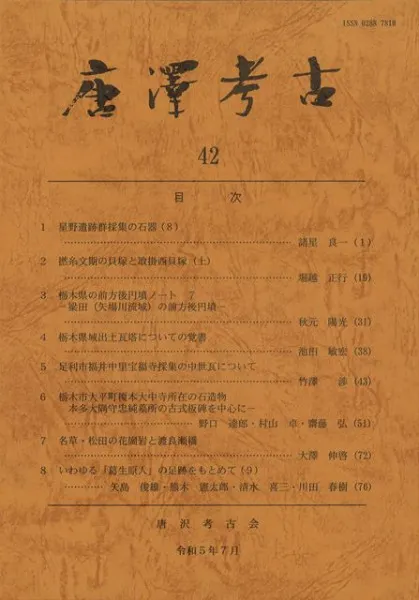 ISSN 0288 7810
唐澤考古
42
目 次
1 星野遺跡群採集の石器(8)
諸星 良一(1)
2 撚糸文期の貝塚と取掛西貝塚(上)
堀越 正行(19)
3 栃木県の前方後円墳ノート 7
-簗田(矢場川流域)の前方後円墳-
秋元 陽光(31)
4 栃木県域出土瓦塔についての覚書
池田 敏宏(38)
5 足利市福井中里宝福寺採集の中世瓦について
竹澤 渉(43)
6 栃木市大平町榎本大中寺所在の石造物
本多大隅守忠純墓所の古式板碑を中心に-
野口 達郎・村山 卓・齋藤 弘(51)
7 名草・松田の花崗岩と渡良瀬橋
大澤 伸啓(72)
8 いわゆる「葛生原人」の足跡をもとめて(9)
矢島 俊雄・熊木 憲太郎・清水 喜三・川田 春樹(76)
唐沢考古会
令和5年7月